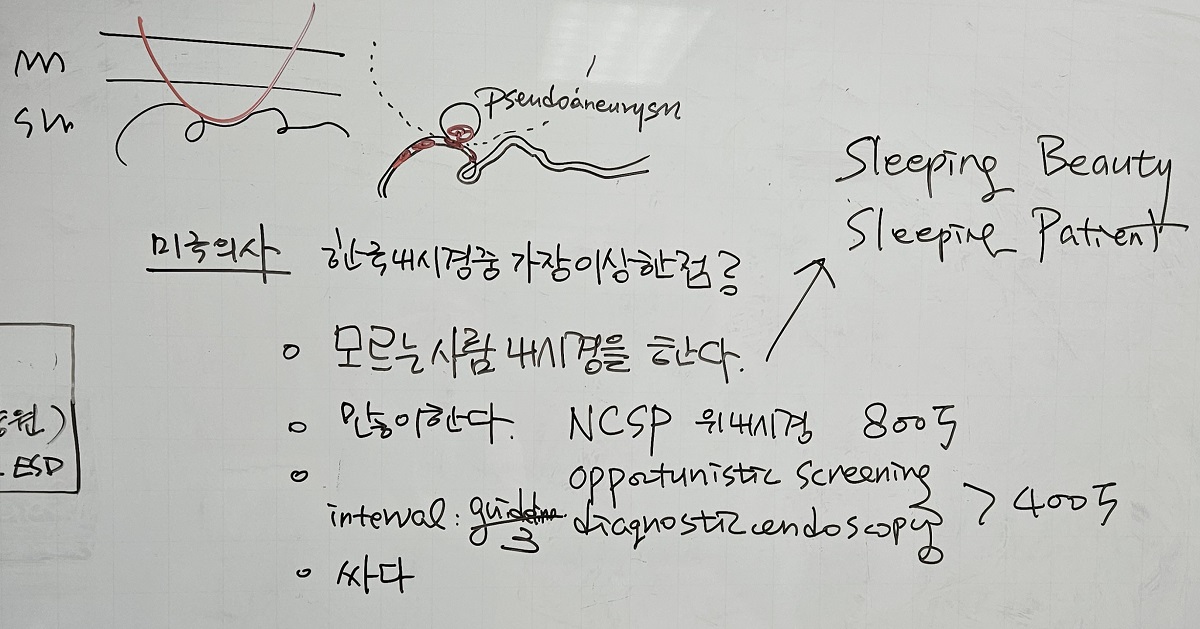 m
sm
Pseudoaneurysm
Sleeping Beauty
Sleeping Patient
미국의사 한국내시경중 가장 이상한점?
모르는 사람 내시경을 한다.
많이한다. NCSP 위내시경 800만
opportunistic screening
interval: guideline diagnostic endoscopy > 400만
3
싸다
원)
ESD